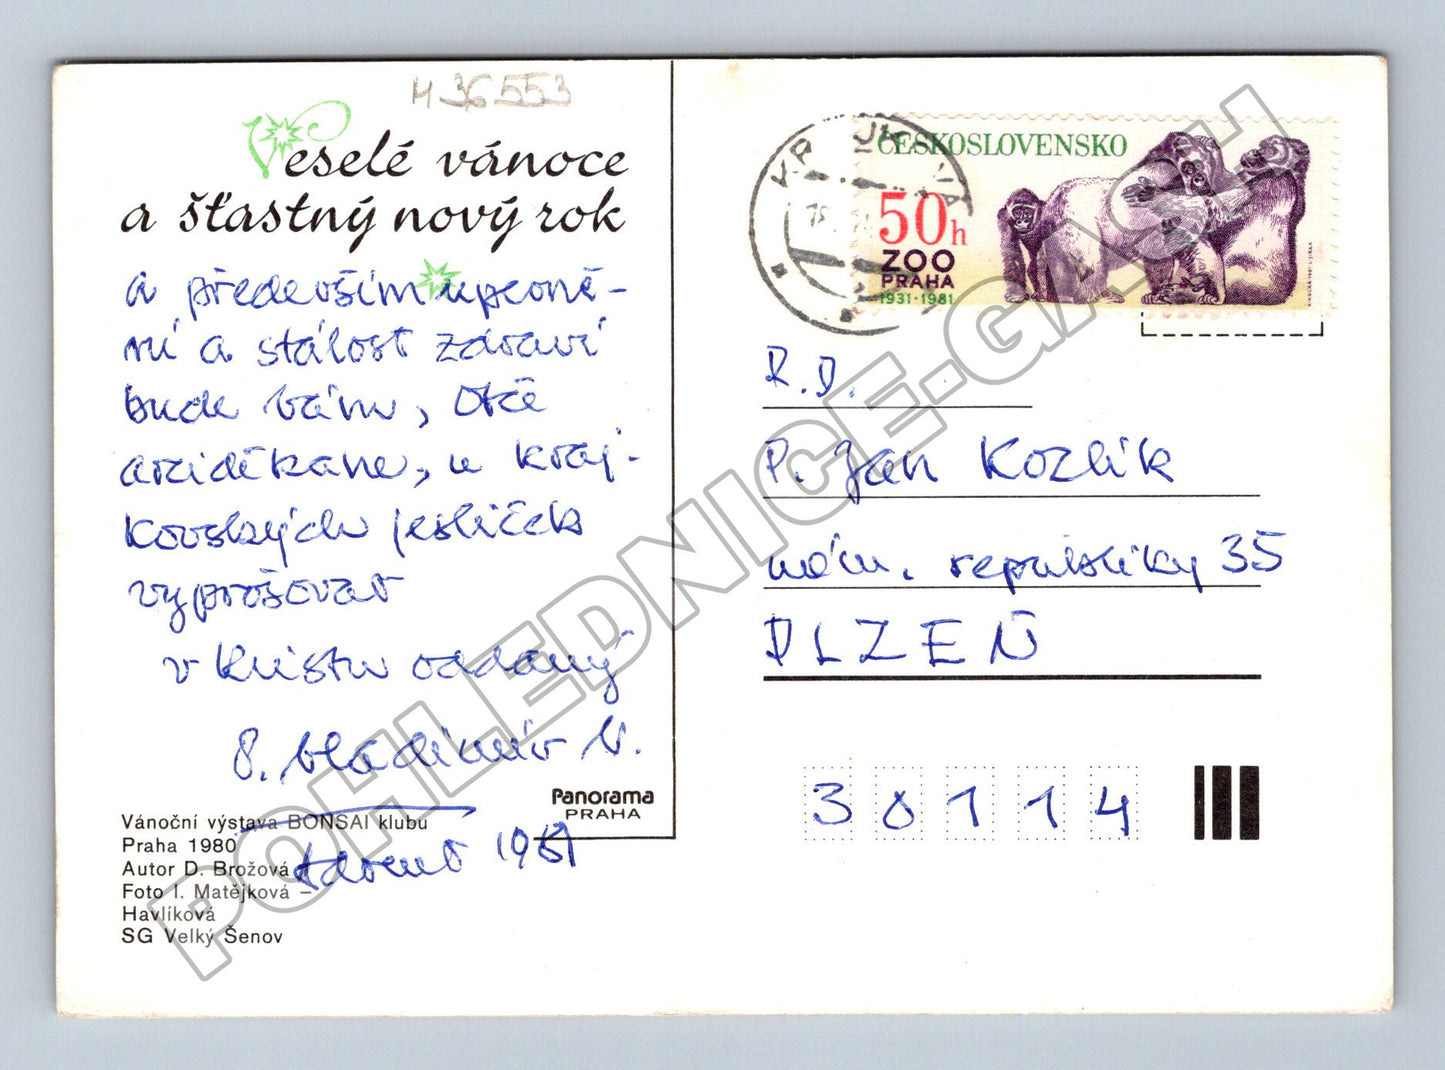 H 36553
Veselé vánoce
a šťastný nový rok
a především upevně-
ní a stálost zdraví
bude vám, Otče
arciděkane, u kraj-
kovských jesliček
vyprošovat
v Kristu oddaný
P. Vladimír V.
Advent 1981
Panorama
PRAHA
Vánoční výstava BONSAI klubu
Praha 1980
Autor D. Brožová
Foto I. Matějková –
Havlíková
SG Velký Šenov
ČESKOSLOVENSKO
50h
ZOO
PRAHA
1931-1981
R.D.
P. Jan Kozlík
nám. republiky 35
PLZEŇ
30114
POHLEDNICE-GASH